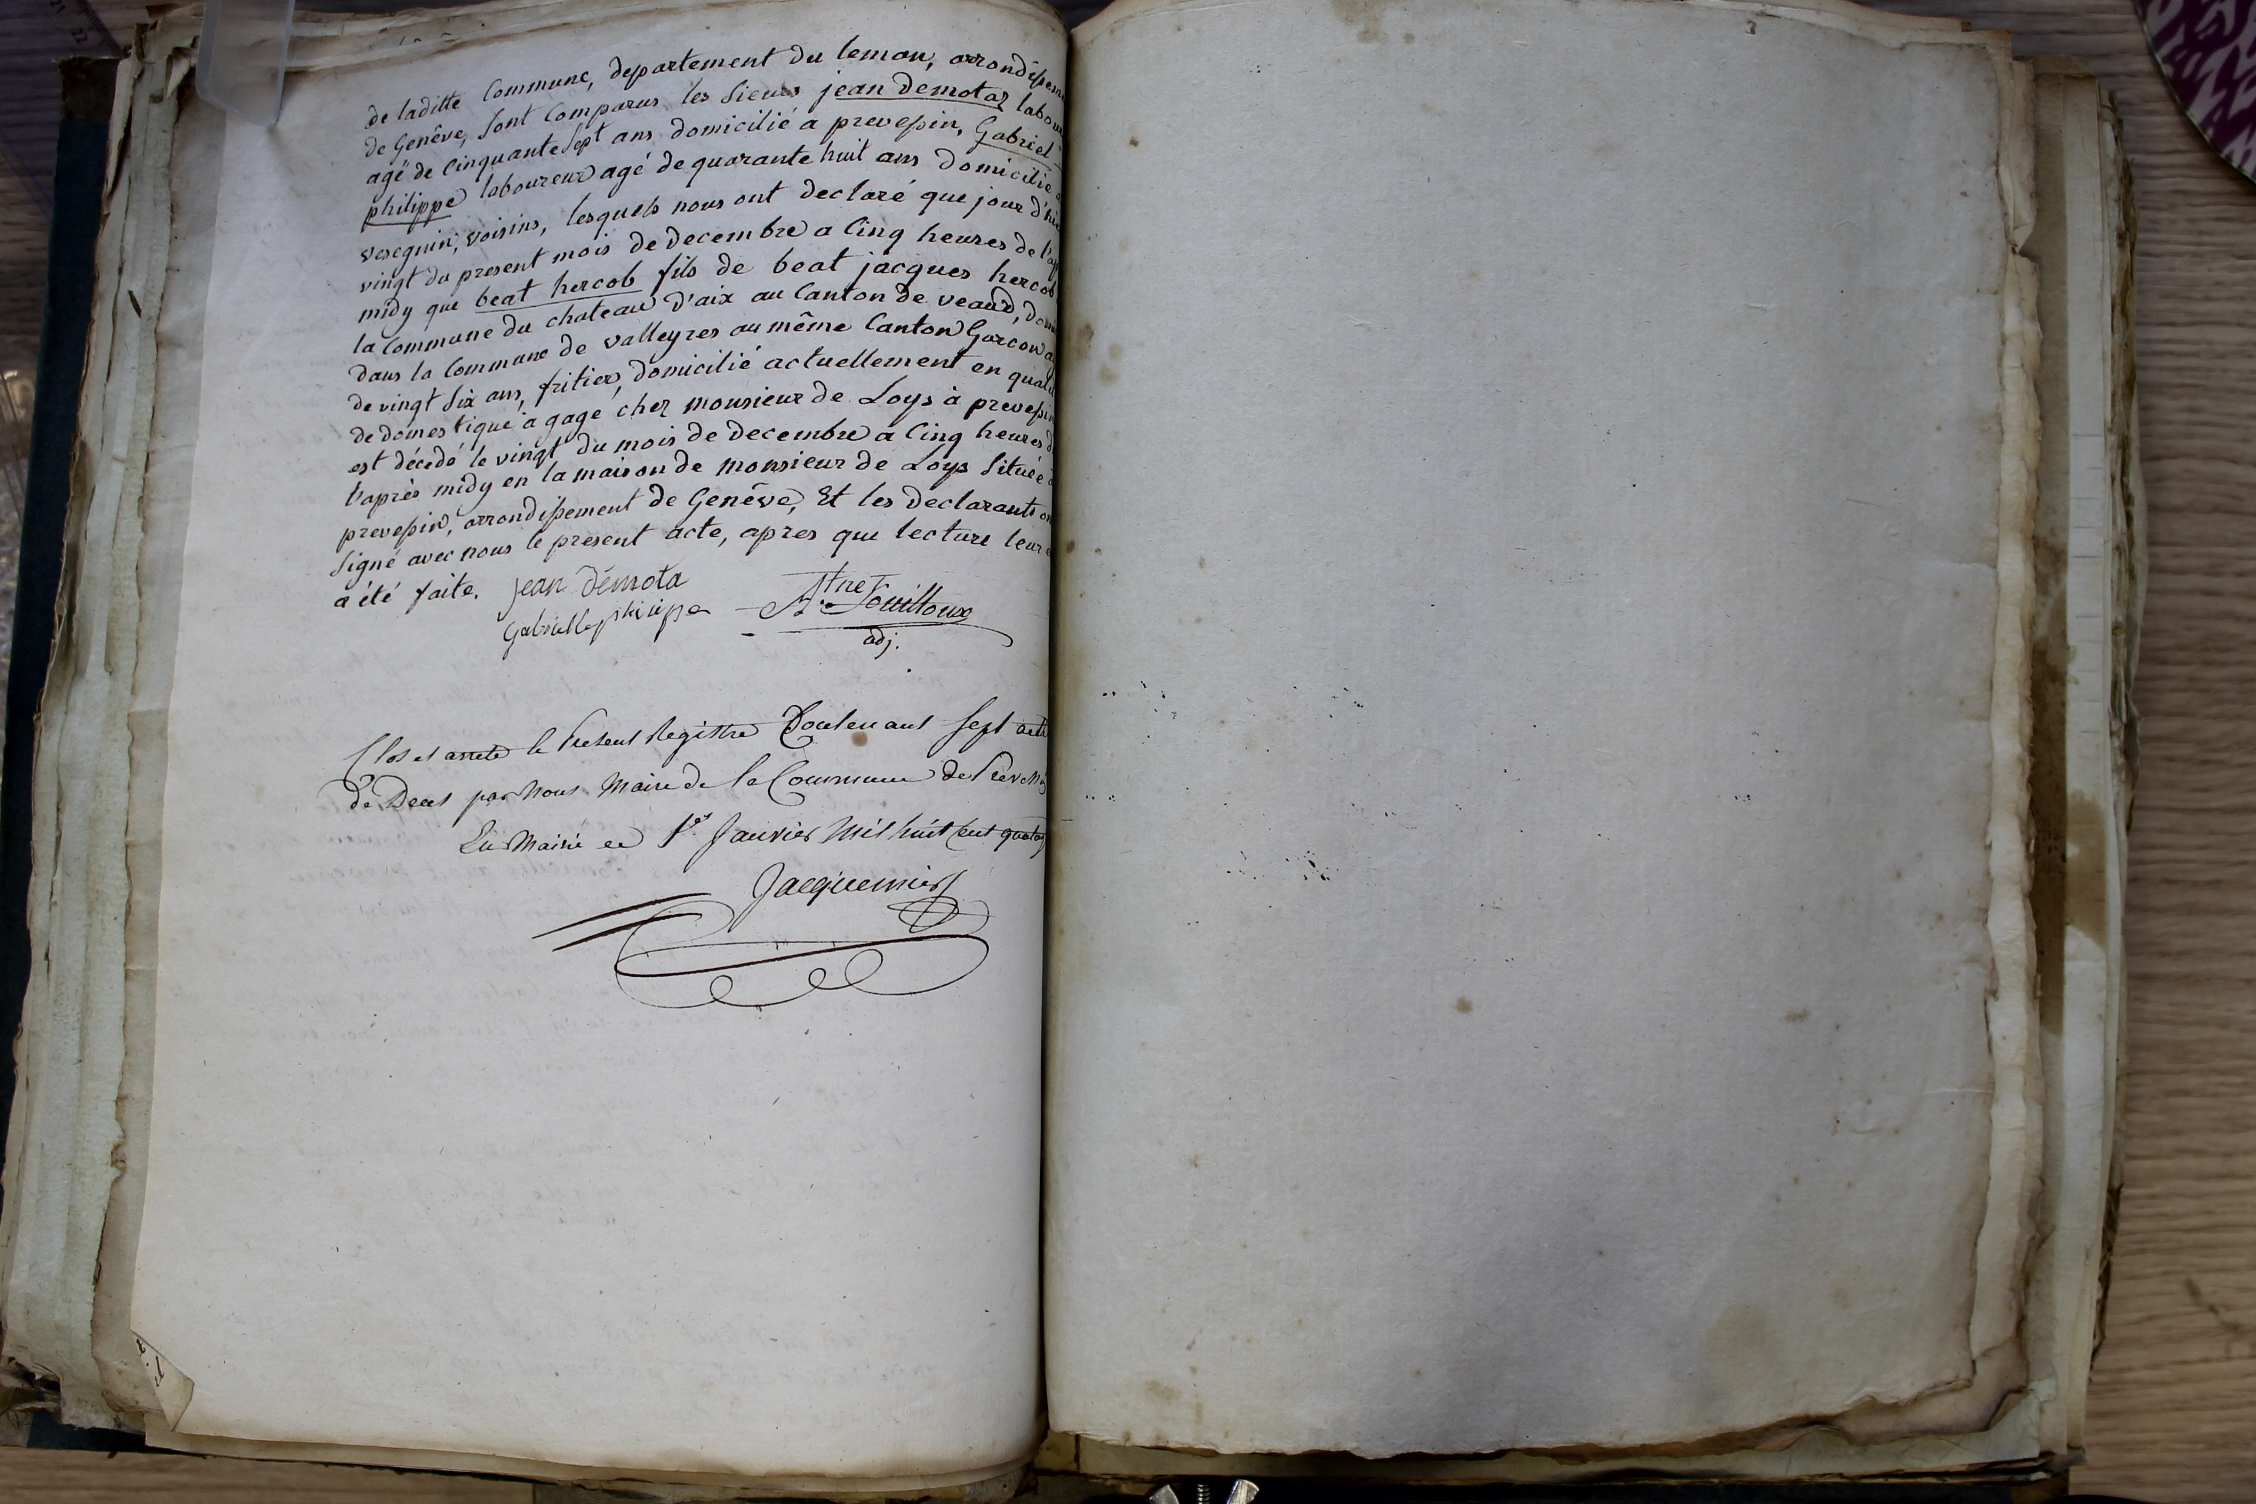 de laditte Commune, departement du leman, arrondissem
de Genêve, sont Comparus les Sieurs jean demotaz labour
agé de Cinquante Sept ans domicilié a prevessin, Gabriel
philippe laboureur agé de quarante huit ans domicilié
vesegnin, voisins, lesquels nous ont declaré que jour d'hie
vingt du present mois de decembre a Cinq heures de l'ap
midy que beat hercob fils de beat jacques hercob
la Commune du chateau d'aix au Canton de veaud, dom
dans la Commune de valleyres au même Canton Garcon a
de vingt Six ans, fritier, domicilié actuellement en quali
de domestique a gage chez monsieur de Loys à prevessin
est décedé le vingt du mois de decembre a Cinq heures d
l'après midy en la maison de monsieur de Loys Située
prevessin, arrondissement de Genêve, Et les declarants on
Signé avec nous le present acte, apres que lecture leur
a été faite. jean démota
Gabrielle philipe Atne Fouilloux
adj.
Clos et arreté le Present Registre Contenant Sept acte
de Deces par Nous Maire de la Commune de
En Mairie ce 1er Janvier Mil huit Cent quatorz
Jacquemier